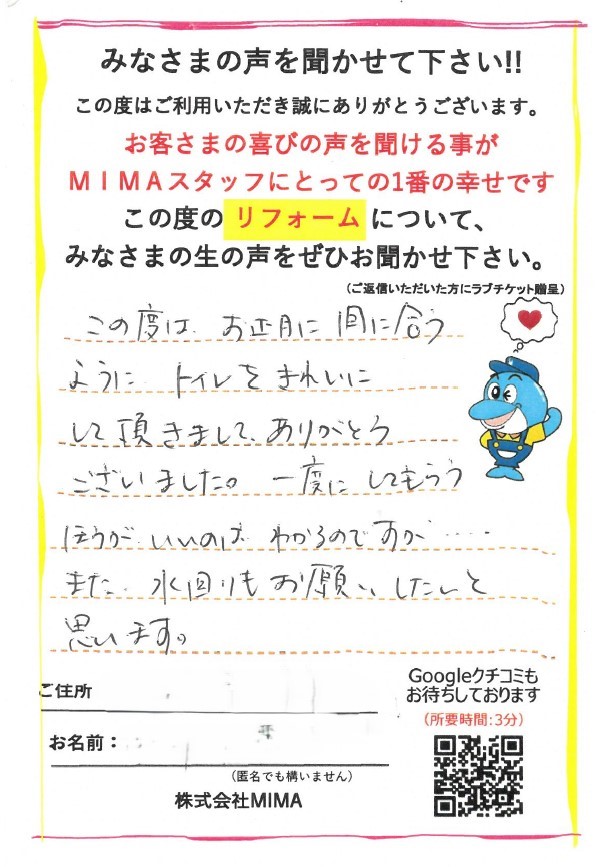 みなさまの声を聞かせて下さい!!
この度はご利用いただき誠にありがとうございます。
お客さまの喜びの声を聞ける事が
MIMAスタッフにとっての1番の幸せです
この度の リフォーム について、
みなさまの生の声をぜひお聞かせ下さい。
(ご返信いただいた方にラブチケット贈呈)
この度は、お正月に間に合う
ように トイレを きれいに
して頂きまして、ありがとう
ございました。一度に してもらう
ほうが いいのは わかるのですが……
また、水回りも お願い したいと
思います。
ご住所
Googleクチコミも
お待ちしております
(所要時間:3分)
お名前:
(匿名でも構いません)
株式会社MIMA